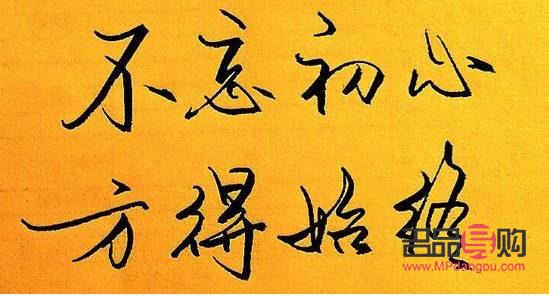 不忘初心
方得始终
名品导购
www.MPdaogou.com